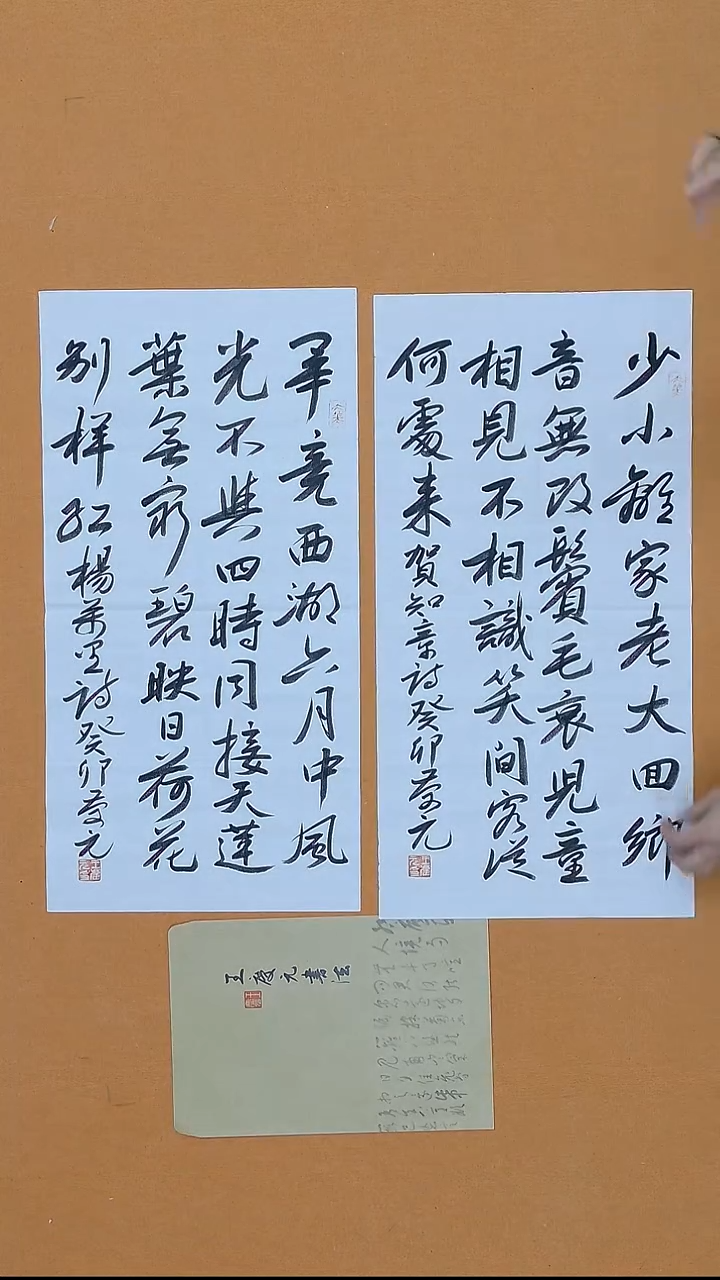 少小離家老大囬鄉
音無改鬢毛衰兒童
相見不相識笑問客從
何處来賀知章詩癸卯慶元
畢竟西湖六月中風
光不與四時同接天蓮
葉無窮碧映日荷花
别样红楊萬里詩癸卯慶元
王慶元書法